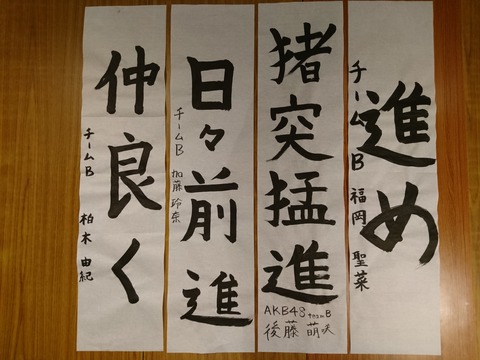 進め
チームB 福岡 聖菜
猪突猛進
AKB48 teamB
後藤 萌咲
日々前進
チームB 加藤 玲奈
仲良く
チームB 柏木 由紀